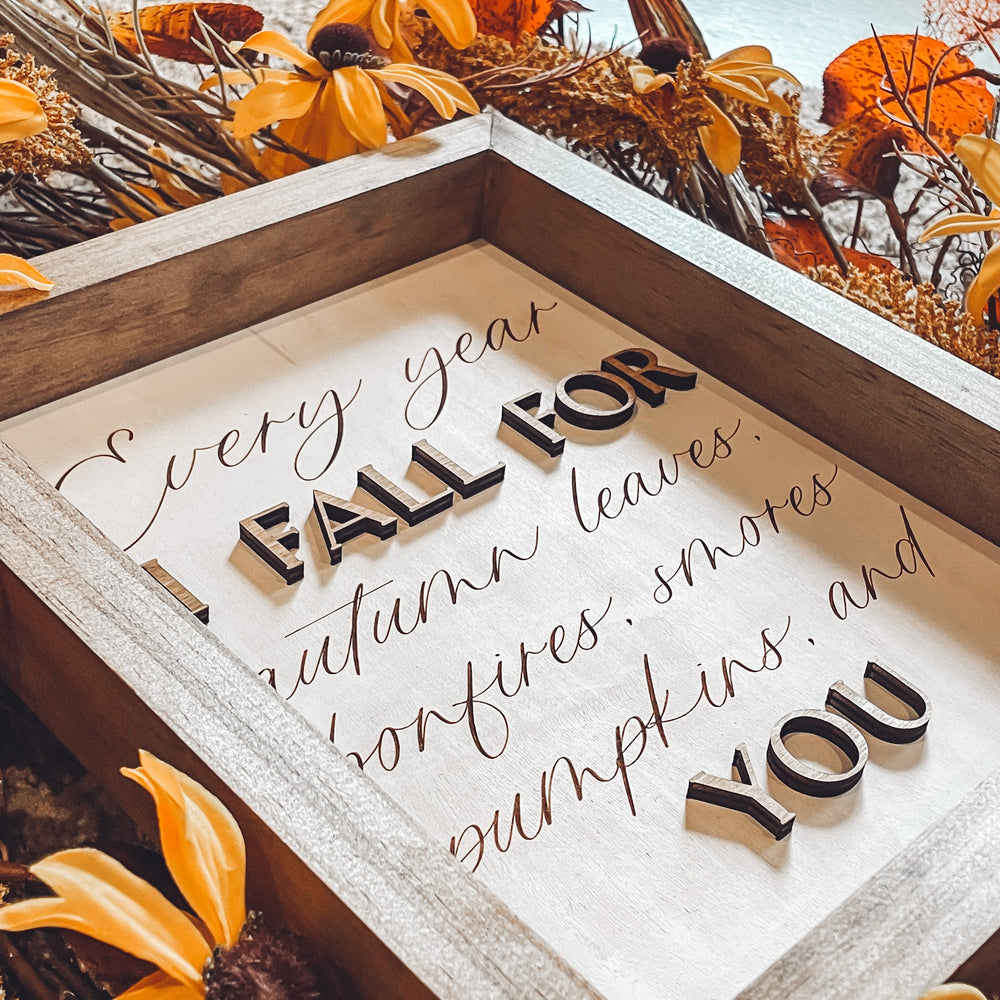 Every year
I FALL FOR
autumn leaves,
bonfires, smores
pumpkins, and
YOU